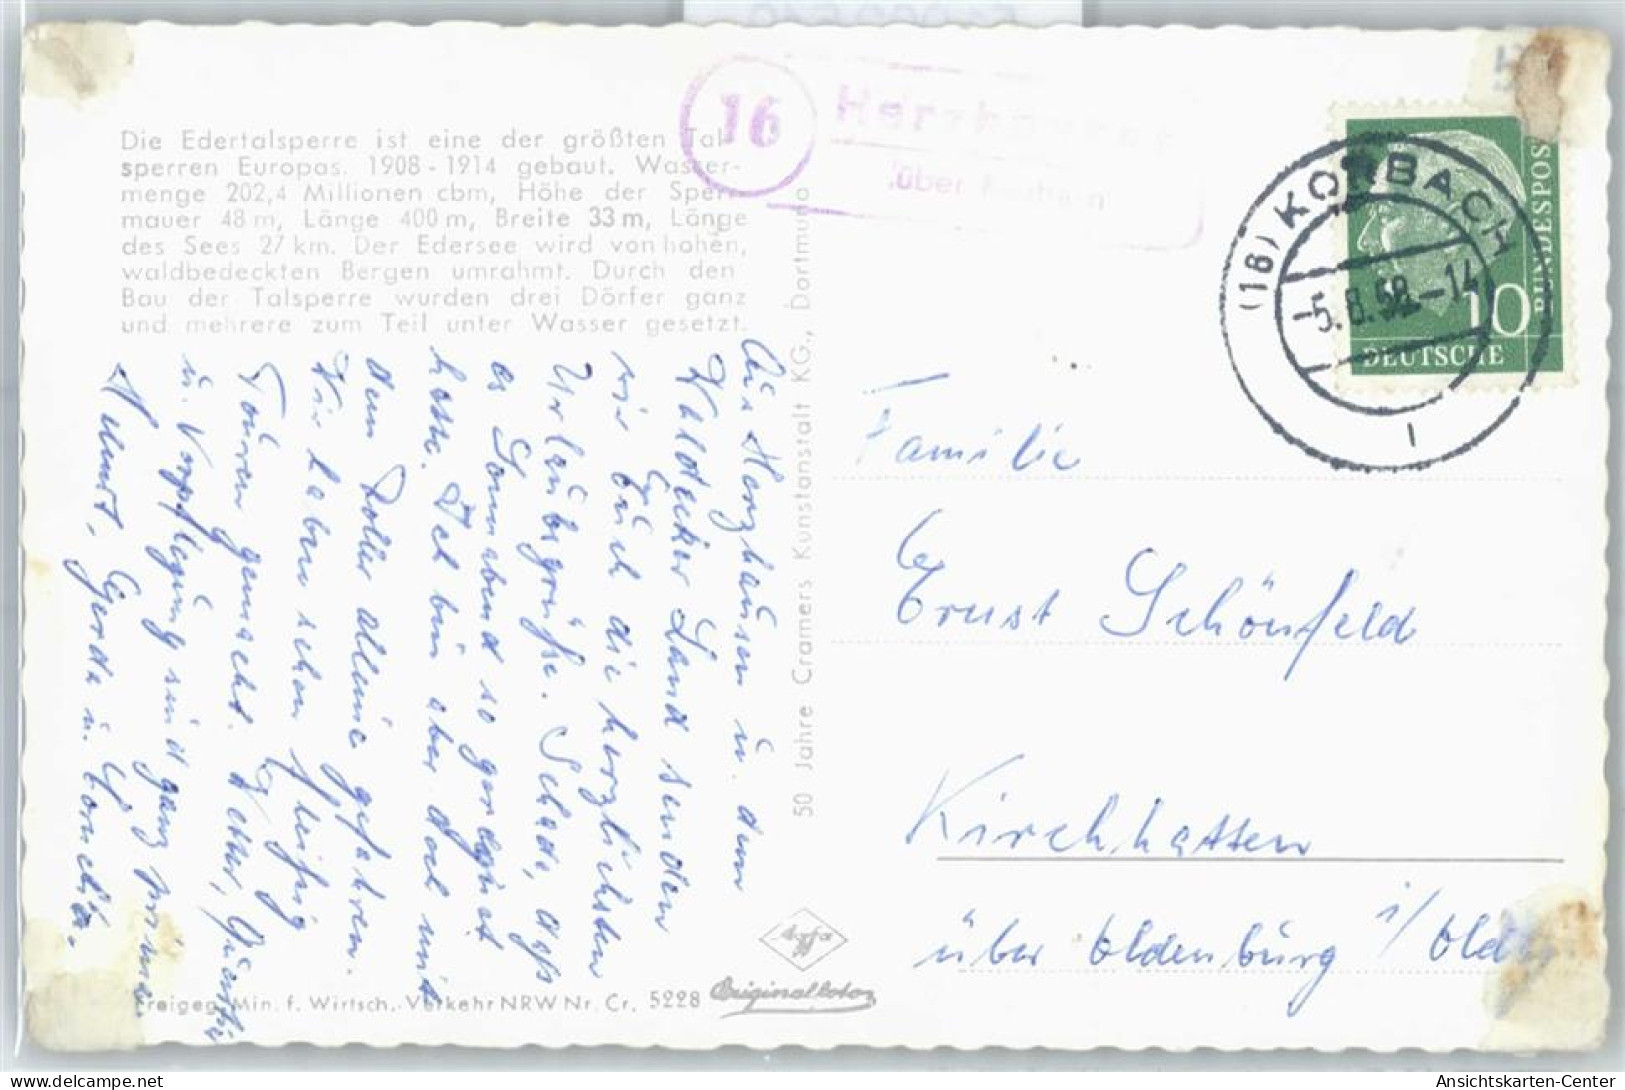 Die Edertalsperre ist eine der größten Tal-
sperren Europas. 1908 - 1914 gebaut. Wasser-
menge 202,4 Millionen cbm, Höhe der Sperr-
mauer 48 m, Länge 400 m, Breite 33 m, Länge
des Sees 27 km. Der Edersee wird von hohen,
waldbedeckten Bergen umrahmt. Durch den
Bau der Talsperre wurden drei Dörfer ganz
und mehrere zum Teil unter Wasser gesetzt.
Aus Herzhausen u. dem
Waldecker Land senden
wir Euch die herzlichsten
Urlaubsgrüße. Schade, daß
es Sonnabend so geregnet
hatte. Ich bin aber doch mit
dem Roller alleine gefahren.
Wir haben schon fleißig
Touren gemacht. Wetter, Quartier
u. Verpflegung sind ganz prima
Helmut, Gerda u. Cornelia.
50 Jahre Cramers Kunstanstalt KG., Dortmund
Freigeg. Min. f. Wirtsch.-Verkehr NRW Nr. Cr. 5228
Agfa
Originalfoto
16
Herzhausen
über
(16) KORBACH
-5.8.58.-14
1
10
DEUTSCHE
BUNDESPOST
Familie
Ernst Schönfeld
Kirchhatten
über Oldenburg i/Old
Ansichtskarten-Center